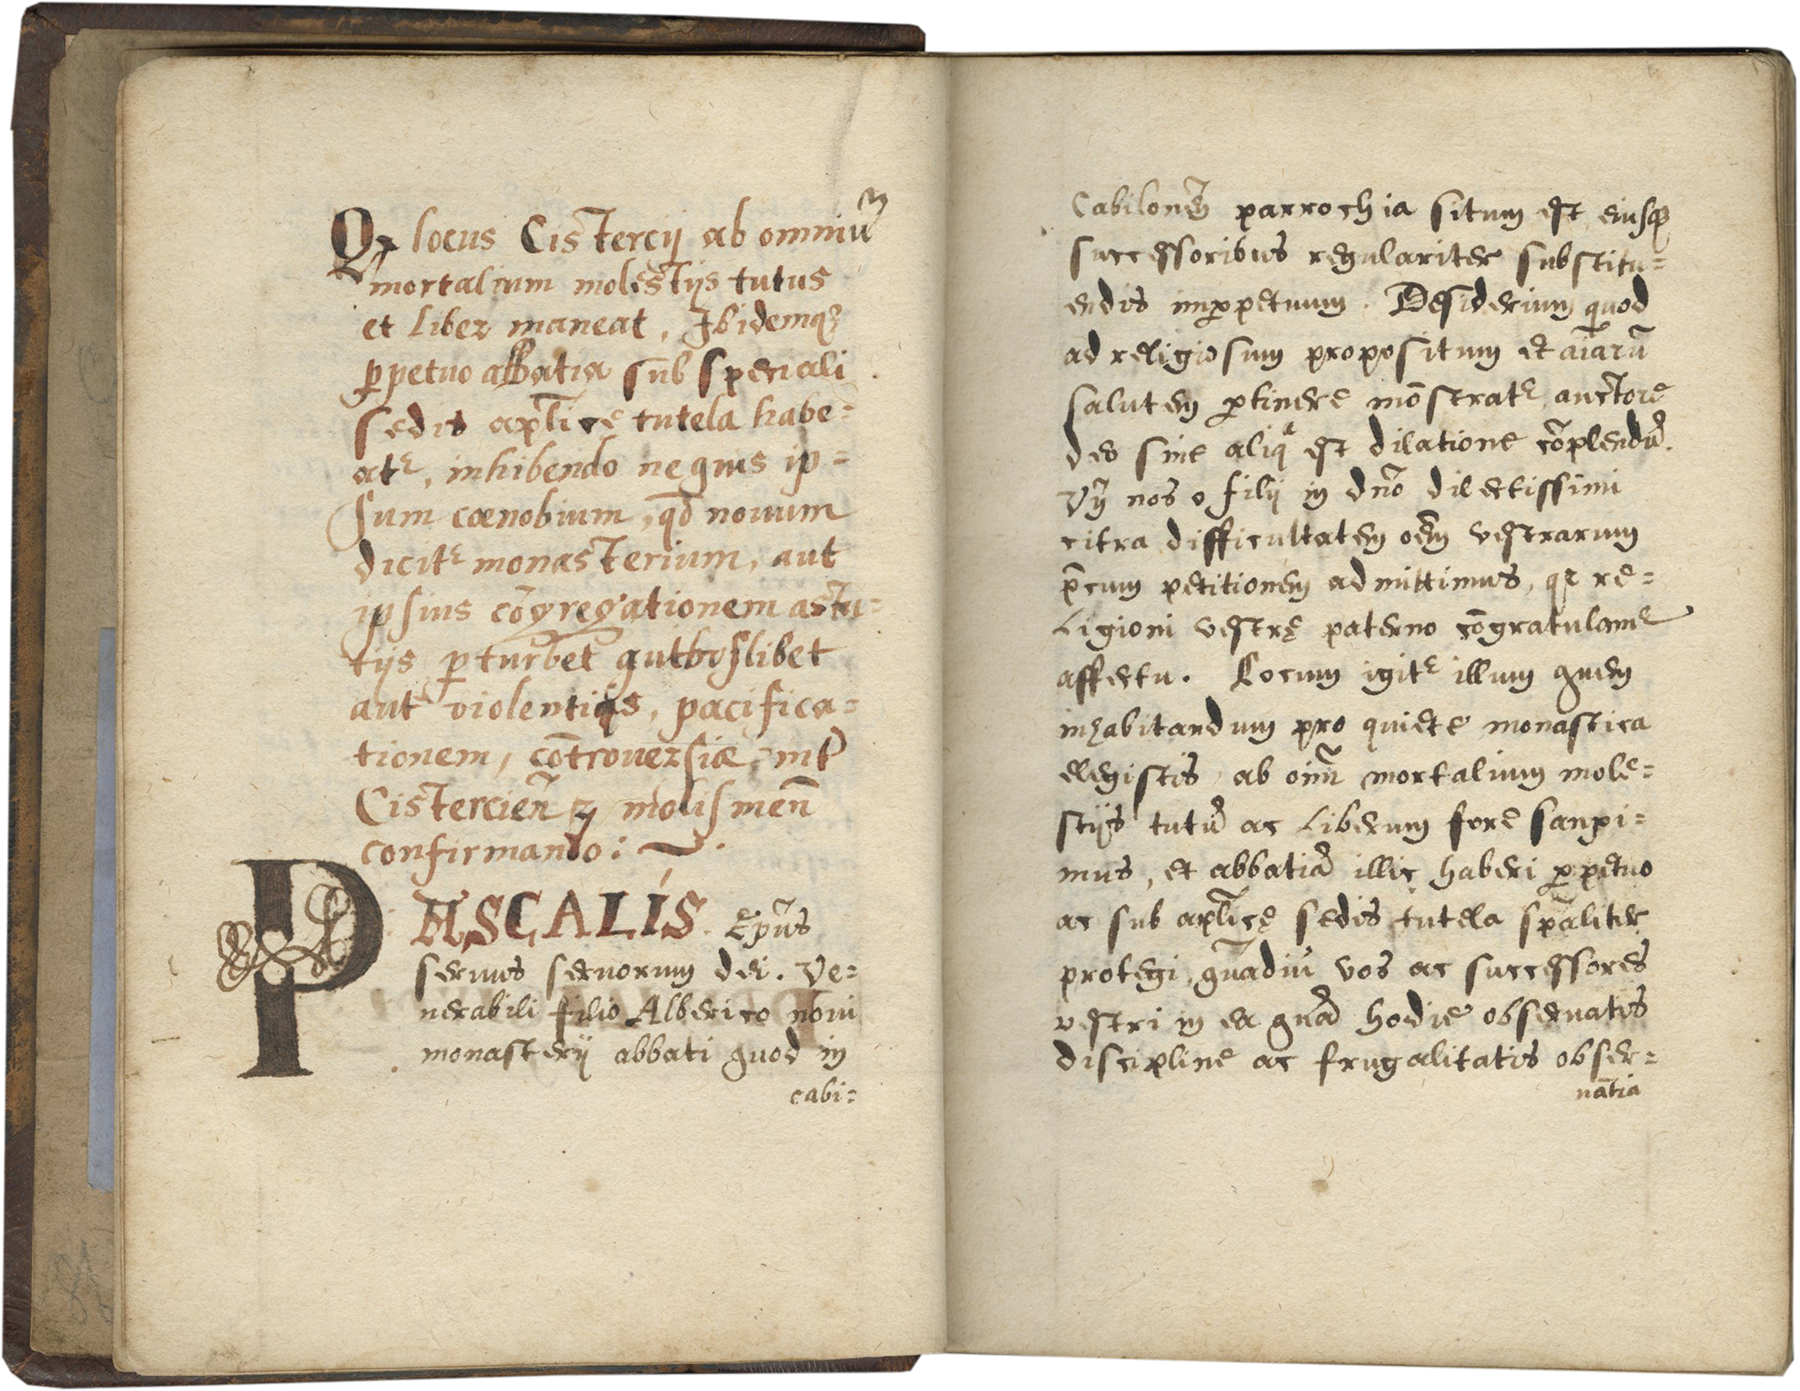 Qꝙ locus Cistercij ab omniũ
mortalium molestijs tutus
et liber maneat, Ibidemqꝫ
ꝑpetuo abbatia sub speciali
sedis aplice tutela habe=
at᷑, inhibendo ne quis ip=
sum cœnobium, qđ nouum
dicit᷑ monasterium, aut
ipsius cõgregationem astu=
tijs ꝑturbet quibuslibet
aut violentijs, pacifica=
tionem, cõtrouersiæ int̃
Cistercieñ ⁊ molismeñ
confirmando:
PASCALIS Ep̃us
seruus seruorum dei. Ve=
nerabili filio Alberico noui
monasterij abbati quod in
cabi=
Cabiloneñ parrochia situm est eiusqꝫ
successoribus regulariter substitu=
endis imꝑpetuum. Desiderium quod
ad religiosum propositum et aĩarũ
salutem ꝑtinere mõstrat᷑ auctore
deo sine aliqͣ est dilatione cõplendũ.
Vñ nos o filij in dño dilectissimi
citra difficultatem oẽm vestrarum
p̃cum petitionem admittimus, qꝛ re=
ligioni vestrę paterno cõgratulam᷑
affectu. Locum igit᷑ illum quem
inhabitandum pro quiete monastica
elegistis ab oĩm mortalium mole=
stijs tutũ ac liberum fore sanxi=
mus, et abbatiã illic haberi ꝑpetuo
ac sub aplicę sedis tutela sp̃aliter
protegi, quãdiu vos ac successores
vestri in ea quã hodie obseruatis
discipline ac frugalitatis obser=
uãtia